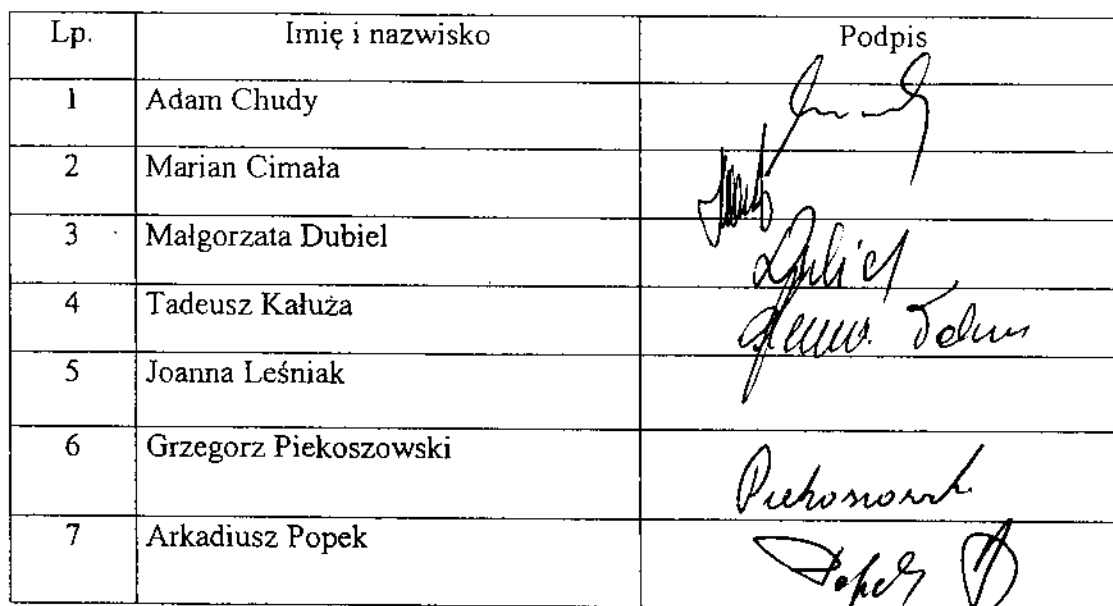 Lp. Imię i nazwisko Podpis
1 Adam Chudy
2 Marian Cimała
3 Małgorzata Dubiel
4 Tadeusz Kałuża
5 Joanna Leśniak
6 Grzegorz Piekoszowski
7 Arkadiusz Popek Popek